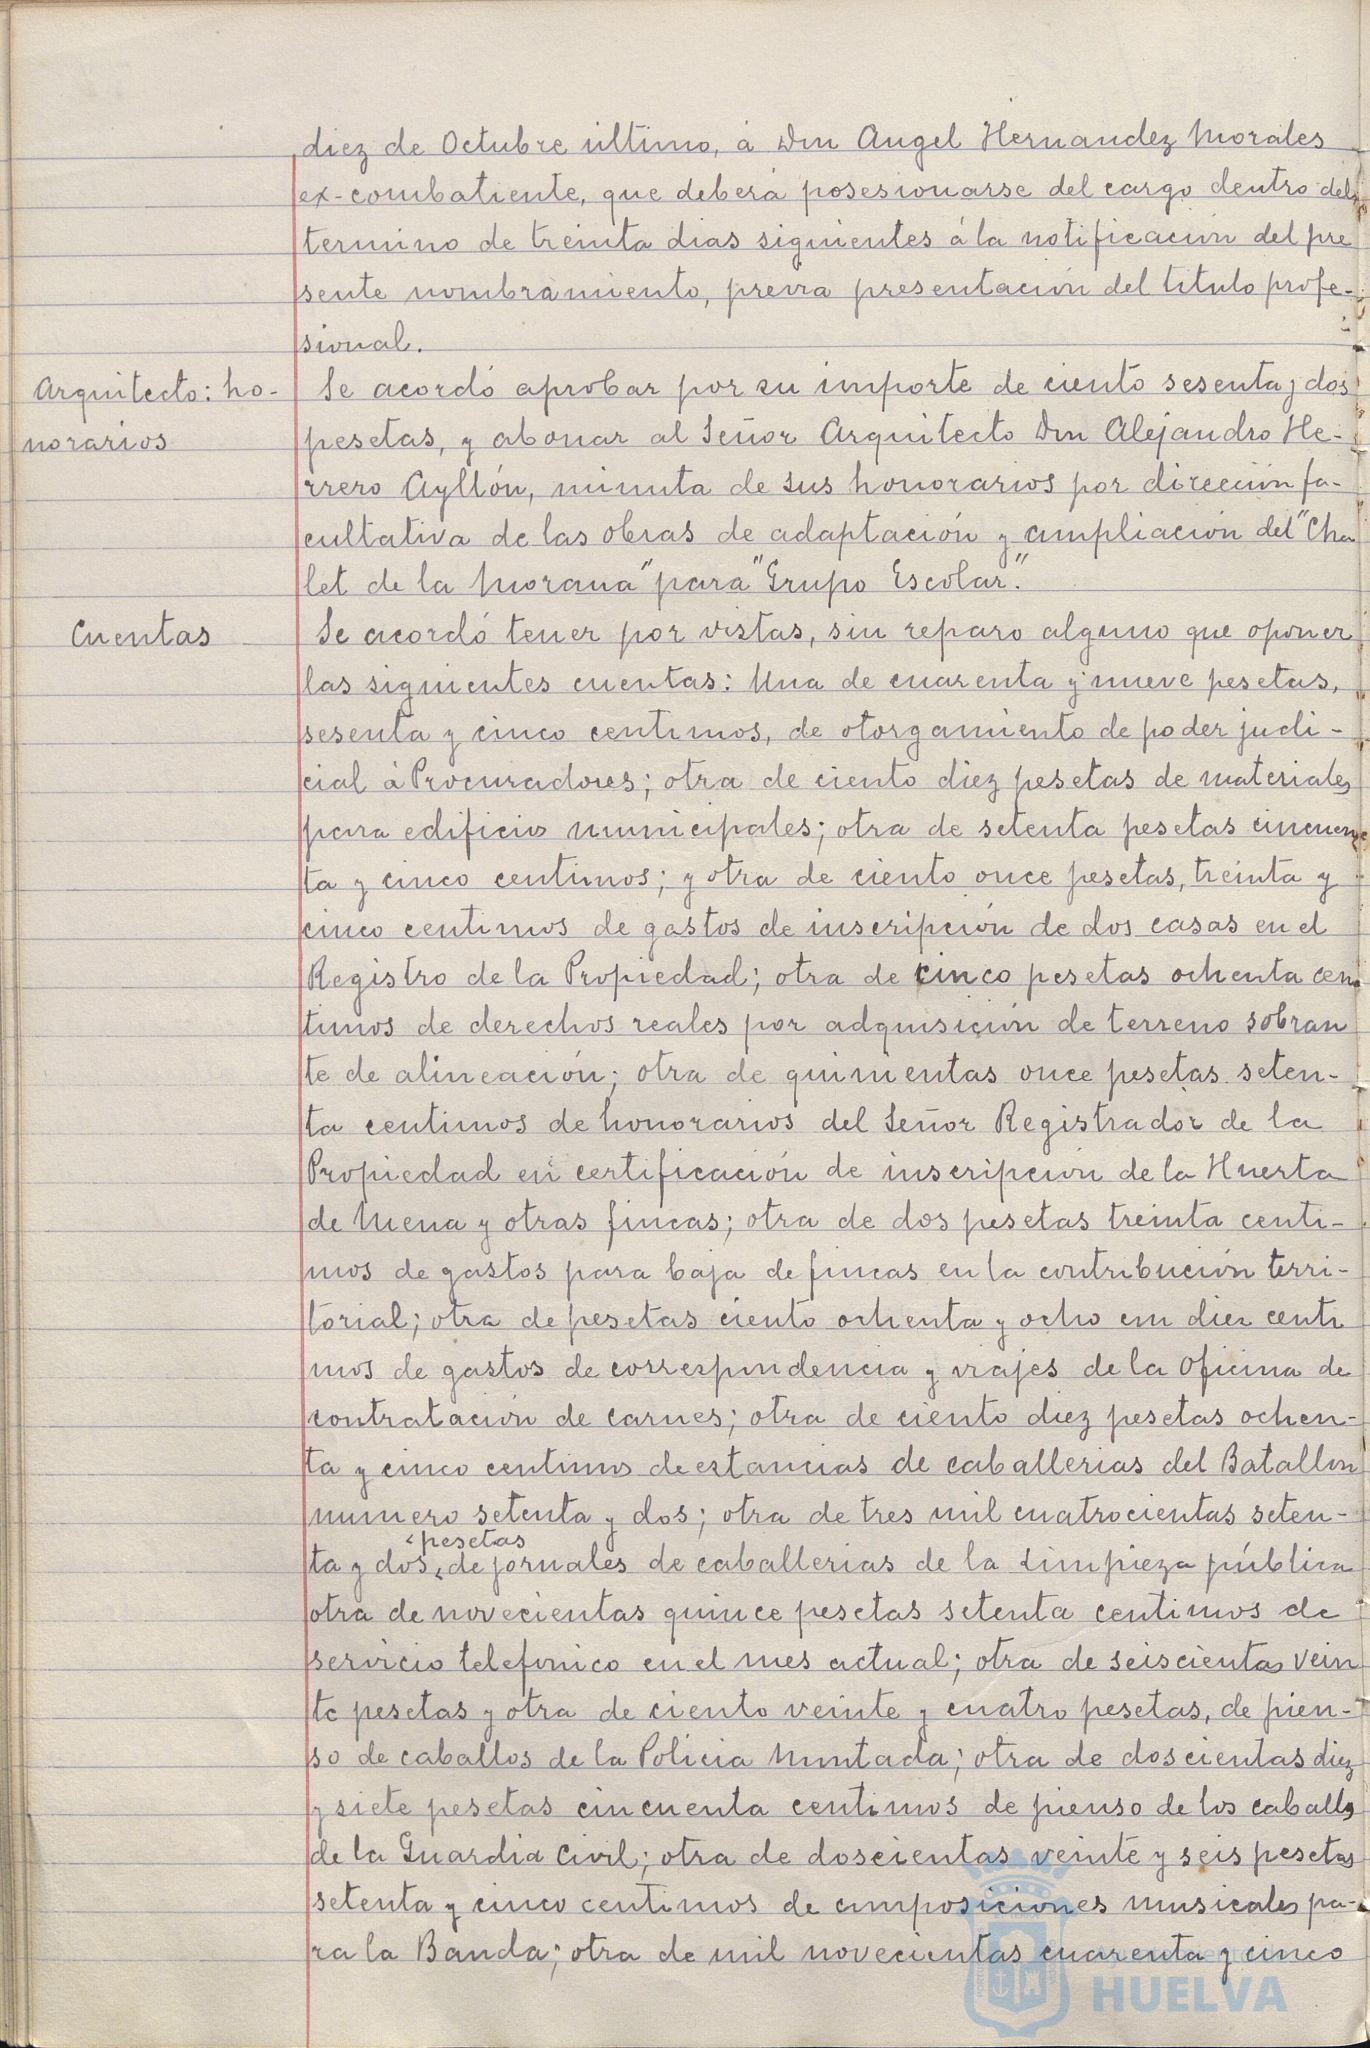 diez de Octubre último, á Don Angel Hernandez Morales
ex-combatiente, que deberá posesionarse del cargo dentro del
termino de treinta dias siguientes á la notificación del pre
sente nombramiento, previa presentación del titulo profe-
sional.
Arquitecto: ho-
norarios
Se acordó aprobar por su importe de ciento sesenta y dos
pesetas, y abonar al Señor Arquitecto Don Alejandro He-
rrero Ayllón, minuta de sus honorarios por dirección fa-
cultativa de las obras de adaptación y ampliación del "Cha
let de la Morana" para "Grupo Escolar."
Cuentas
Se acordó tener por vistas, sin reparo alguno que oponer
las siguientes cuentas: Una de cuarenta y nueve pesetas,
sesenta y cinco centimos, de otorgamiento de poder judi-
cial á Procuradores; otra de ciento diez pesetas de materiales
para edificios municipales; otra de setenta pesetas cincuen
ta y cinco centimos; y otra de ciento once pesetas, treinta y
cinco centimos de gastos de inscripción de dos casas en el
Registro de la Propiedad; otra de cinco pesetas ochenta cen
timos de derechos reales por adquisición de terreno sobran
te de alineación; otra de quinientas once pesetas seten-
ta centimos de honorarios del Señor Registrador de la
Propiedad en certificación de inscripción de la Huerta
de Mena y otras fincas; otra de dos pesetas treinta centi-
mos de gastos para baja de fincas en la contribución terri-
torial; otra de pesetas ciento ochenta y ocho con diez centi
mos de gastos de correspondencia y viajes de la Oficina de
contratación de carnes; otra de ciento diez pesetas ochen-
ta y cinco centimos de estancias de caballerias del Batallon
numero setenta y dos; otra de tres mil cuatrocientas seten-
pesetas
ta y dos, de jornales de caballerias de la Limpieza pública
otra de novecientas quince pesetas setenta centimos de
servicio telefonico en el mes actual; otra de seiscientas vein
te pesetas y otra de ciento veinte y cuatro pesetas, de pien-
so de caballos de la Policia Montada; otra de doscientas diez
y siete pesetas cincuenta centimos de pienso de los caballos
de la Guardia Civil; otra de doscientas veinte y seis pesetas
setenta y cinco centimos de composiciones musicales pa-
ra la Banda; otra de mil novecientas cuarenta y cinco
HUELVA